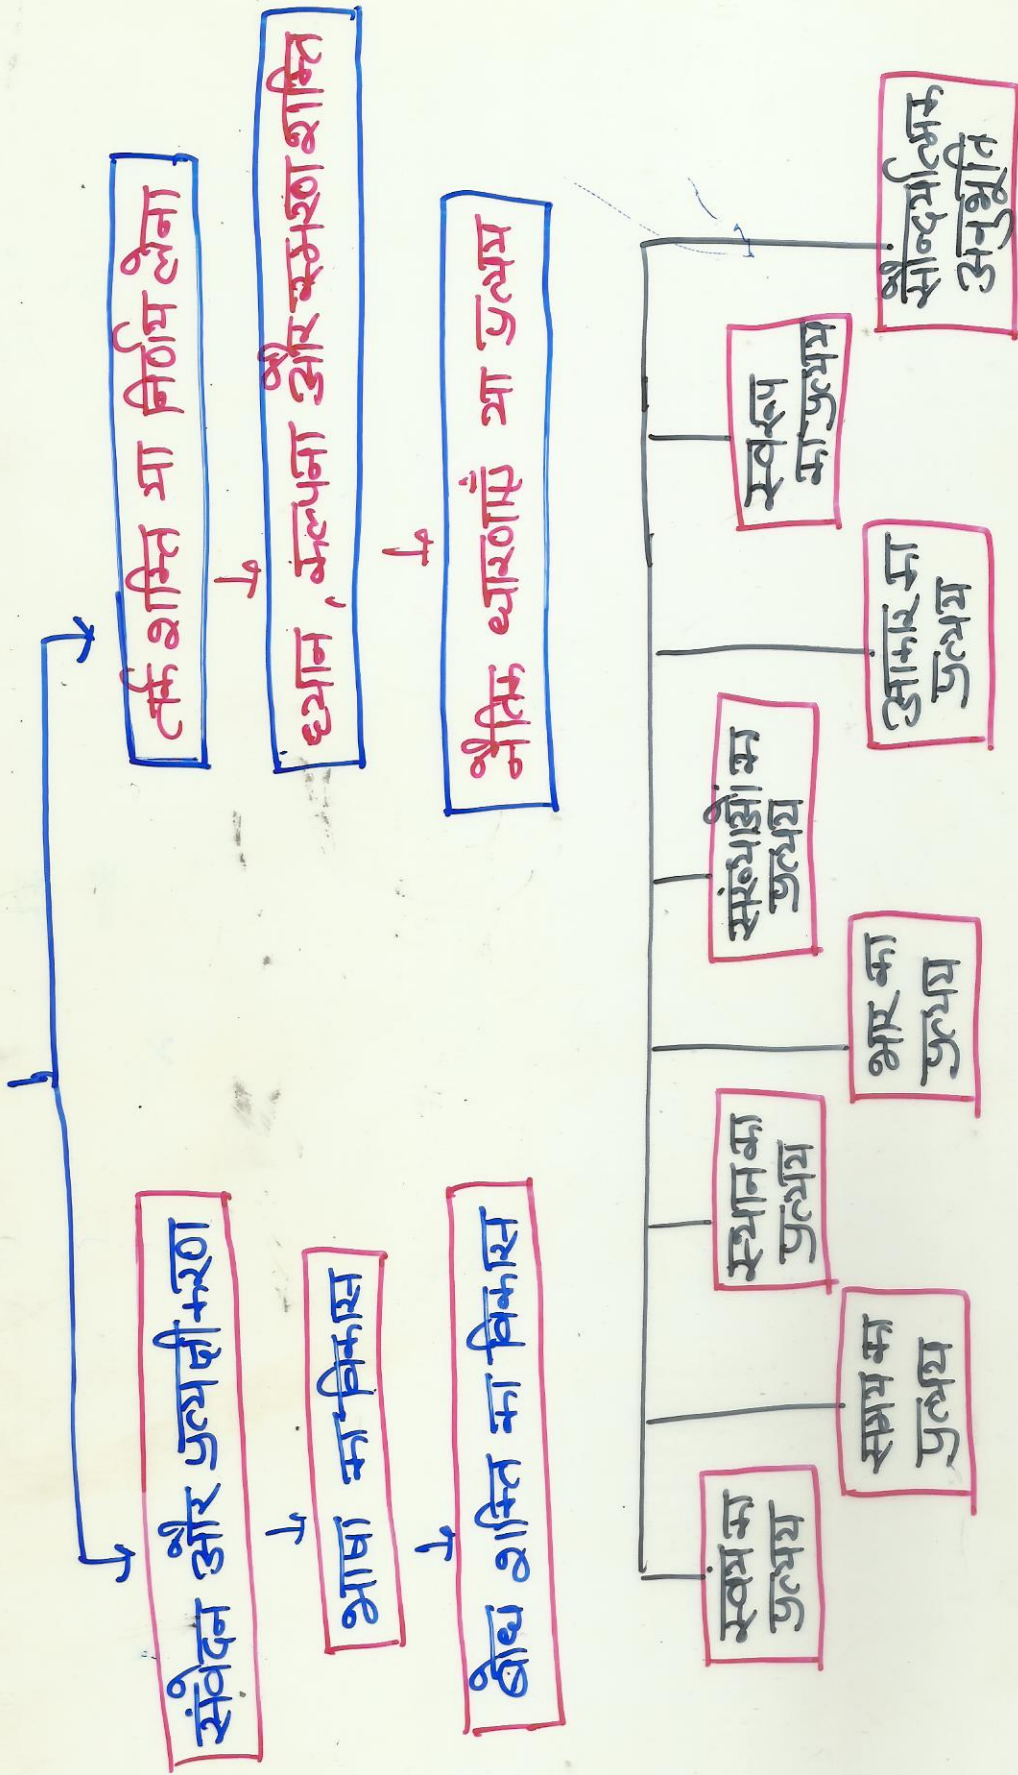 संवेदन और प्रत्यक्षीकरण
भाषा का विकास
बोध शक्ति का विकास
तर्क शक्ति या निर्णय लेना
ध्यान, कल्पना और स्मरण शक्ति
नैतिक धारणाएँ या प्रत्यय
स्वयं का
प्रत्यय
समय का
प्रत्यय
स्थान का
प्रत्यय
भार का
प्रत्यय
संख्याओं का
प्रत्यय
आकार का
प्रत्यय
स्वरूप
का प्रत्यय
सौन्दर्यात्मक
अनुभूति